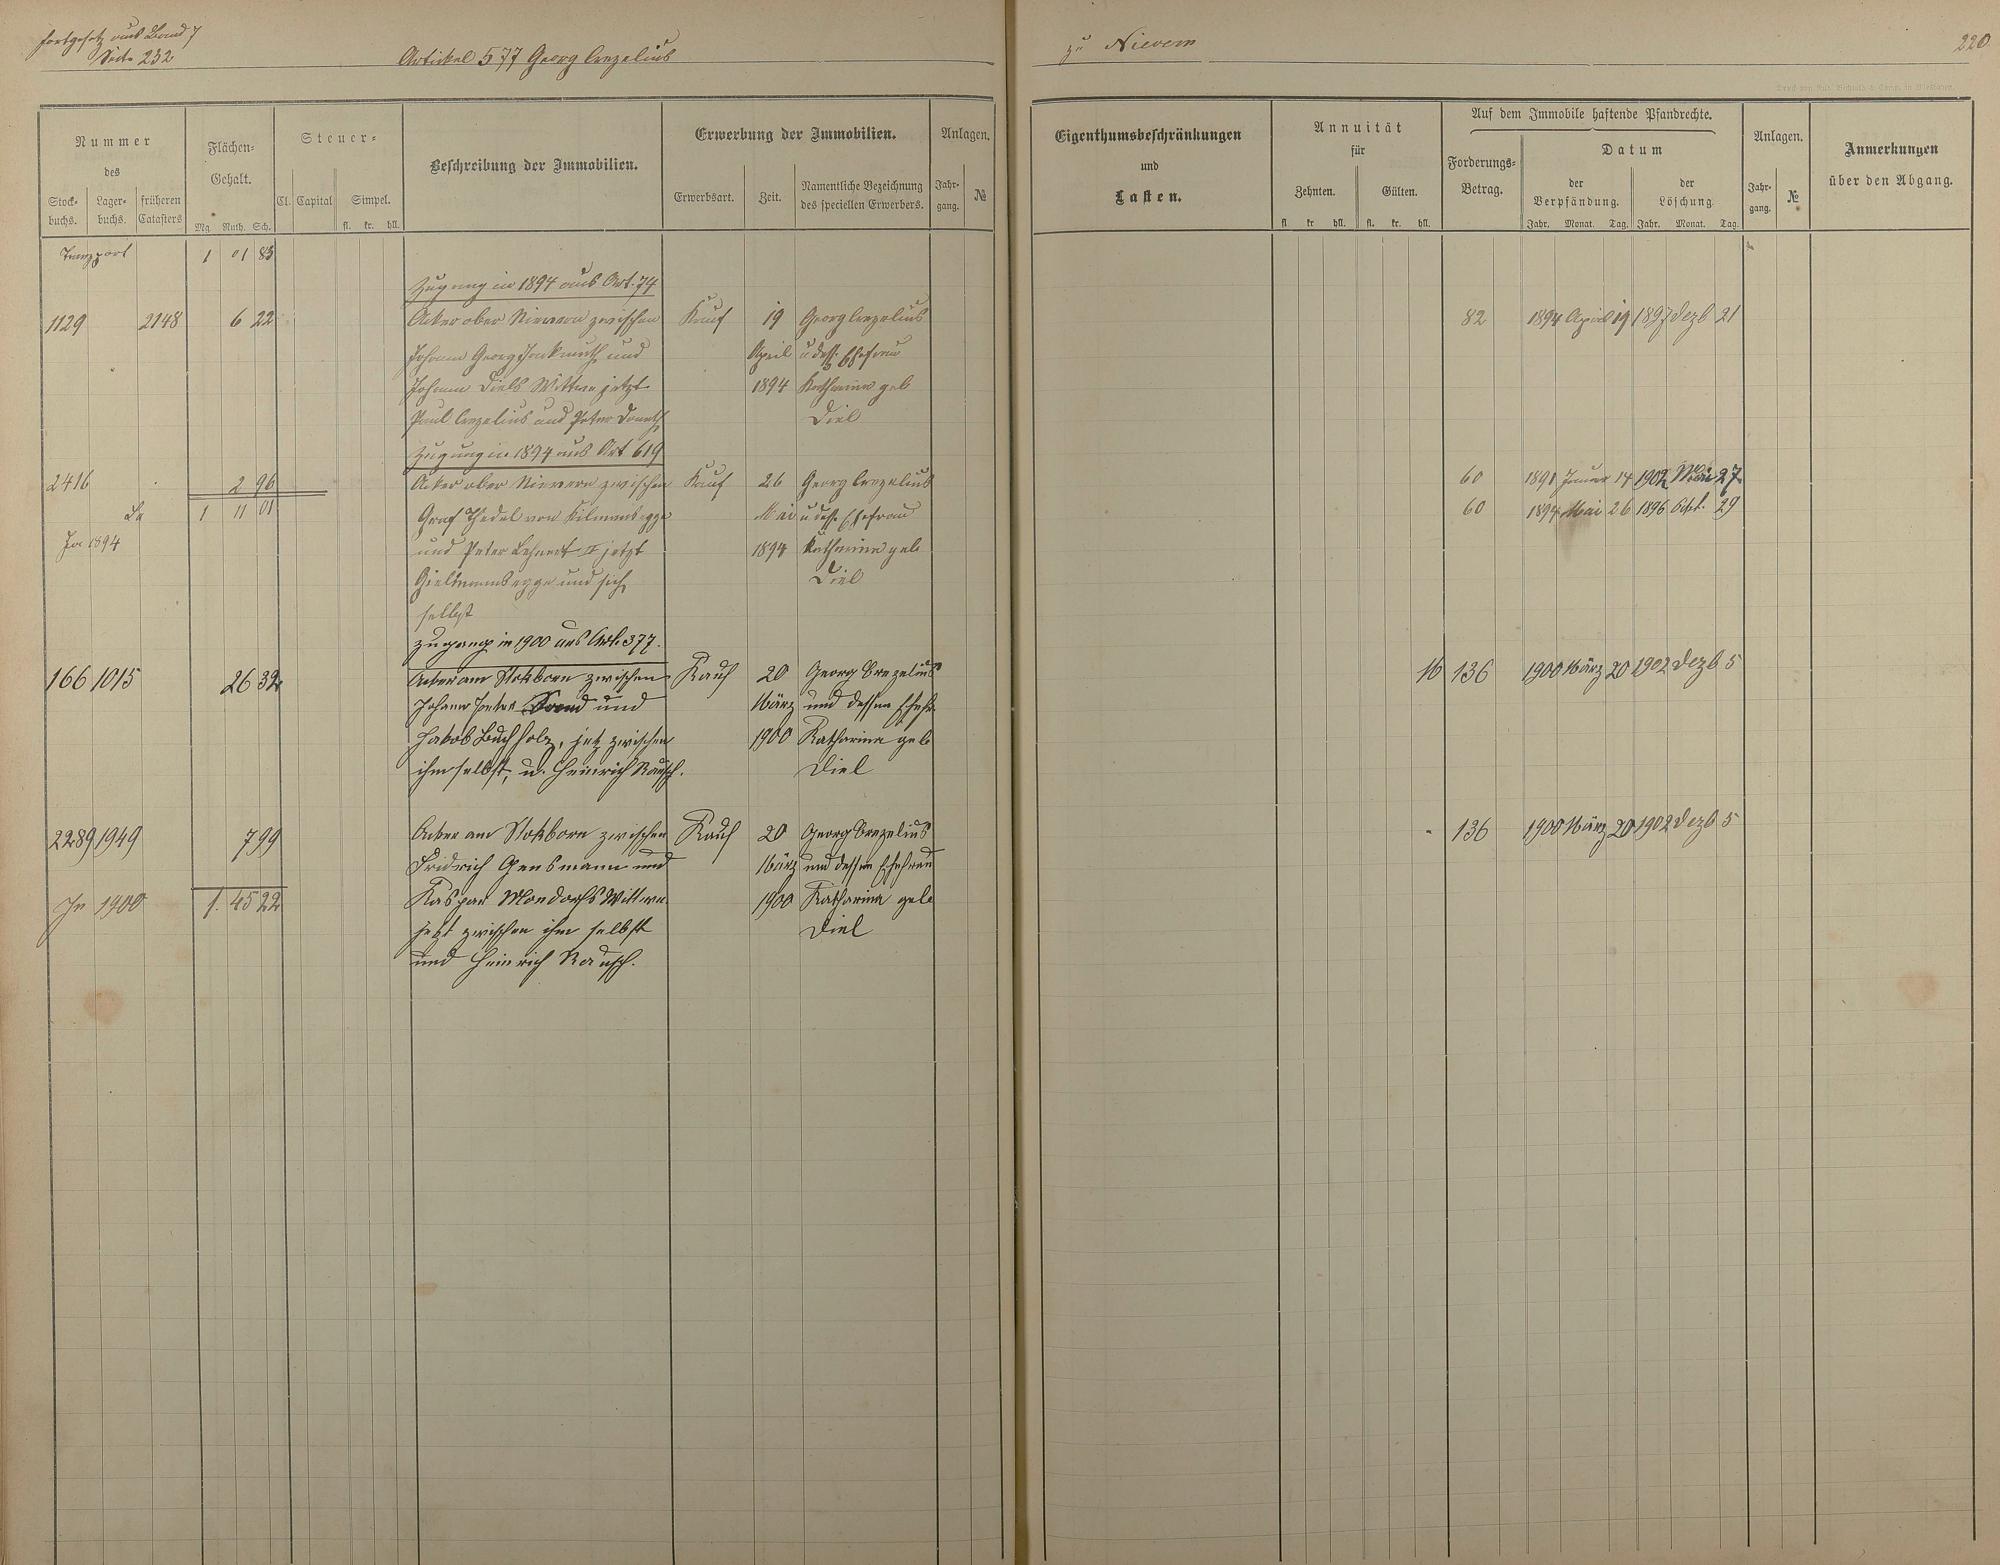 fortgesetz aus Band 7
Seite 232
Artikel 577 Georg Crezelius
zu Nievern
220
Nummer
des
Stock-buchs.
Lager-buchs.
früheren Catasters
Flächen-Gehalt.
Mg. Ruth. Sch.
Steuer-
Cl. Capital Simpel.
fl. kr. hll.
Beschreibung der Immobilien.
Erwerbung der Immobilien.
Erwerbsart.
Zeit.
Namentliche Bezeichnung
des speciellen Erwerbers.
Anlagen.
Jahr-gang.
№
Eigenthumsbeschränkungen
und
Lasten.
Annuität
für
Zehnten. Gülten.
fl. kr. hll. fl. kr. hll.
Auf dem Immobile haftende Pfandrechte.
Forderungs-Betrag.
Datum
der Verpfändung.
der Löschung
Jahr. Monat. Tag. Jahr. Monat. Tag.
Anlagen.
Jahr-gang.
№
Anmerkungen
über den Abgang.
Transport 1 01 83
Zugang in 1894 aus Art. 74
1129 2148 6 22 Acker ober Nievern zwischen Kauf 19 Georg Crezelius 82 1894 April 19 1897 Dezb 21
Johann Georg und April u dess. Ehefrau
Johann Diels Wittwe jetzt 1894 Katharina geb
Paul Crezelius und Peter Donath Diel
Zugang in 1894 aus Art 619
2416 2 96 Acker ober Nievern zwischen Kauf 26 Georg Crezelius 60 1891 Januar 14 1902 Mai 27
1 11 01 Graf Thedel von Kilmansegge Mai u dess Ehefrau 60 1894 Mai 26 1896 Okt. 29
In 1894 und Peter Lehnert II jetzt 1894 Katharina geb
Gielmansegge und sich Diel
selbst
Zugang in 1900 aus Art. 377.
166 1015 26 32 Acker am Stokborn zwischen Kauf 20 Georg Crezelius 16 136 1900 März 20 1902 Dezb 5
Johann Peter und März und dessen Ehefr
Jakob Buchholz, jetz zwischen 1900 Katharina geb
ihm selbst, u. Heinrich Rausch. Diel
2289 1949 7 99 Acker am Stokborn zwischen Kauf 20 Georg Crezelius " 136 1900 März 20 1902 Dezb 5
Fridrich Gensmann und März und dessen Ehefrau
In 1900 1. 45 22 Kaspar Mondorfs Wittwe 1900 Katharina geb
jetzt zwischen ihm selbst Diel
und Heinrich Rausch.